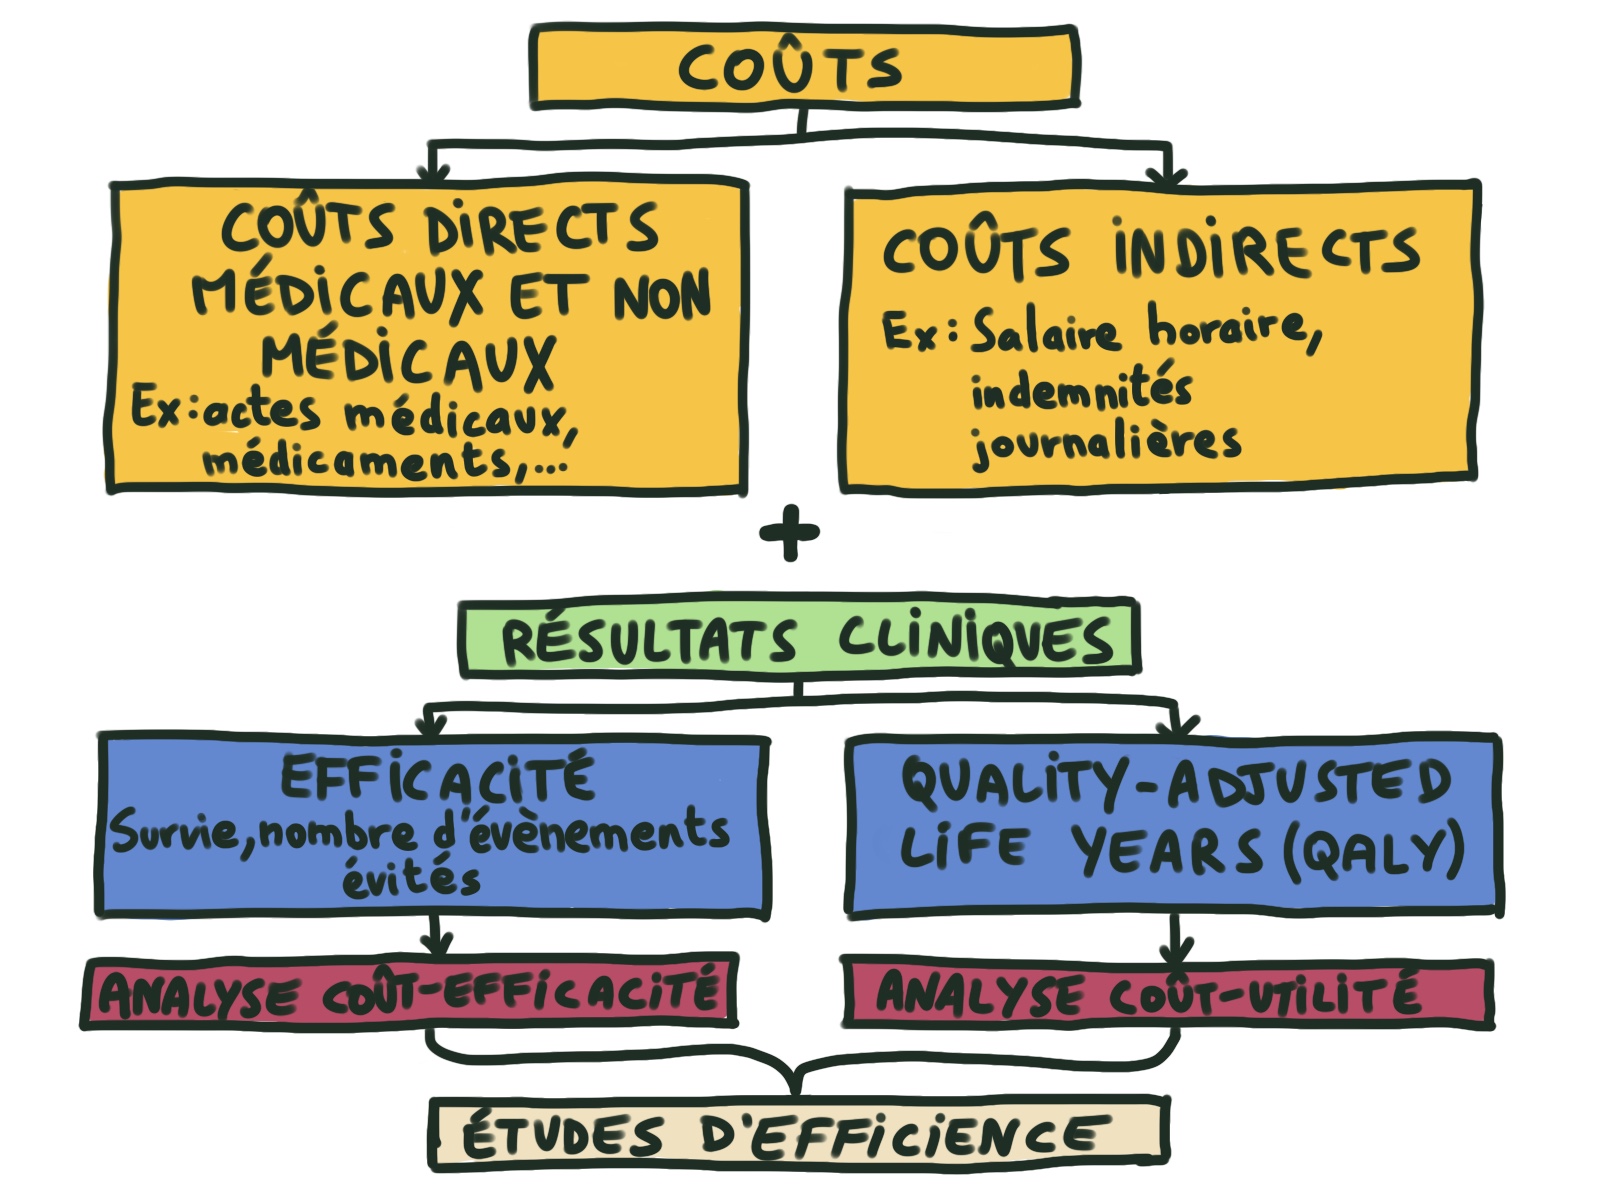 COÛTS
COÛTS DIRECTS
MÉDICAUX ET NON
MÉDICAUX
Ex: actes médicaux,
médicaments,...
COÛTS INDIRECTS
Ex: Salaire horaire,
indemnités
journalières
+
RÉSULTATS CLINIQUES
EFFICACITÉ
Survie, nombre d'évènements
évités
QUALITY-ADJUSTED
LIFE YEARS (QALY)
ANALYSE COÛT-EFFICACITÉ
ANALYSE COÛT-UTILITÉ
ÉTUDES D'EFFICIENCE